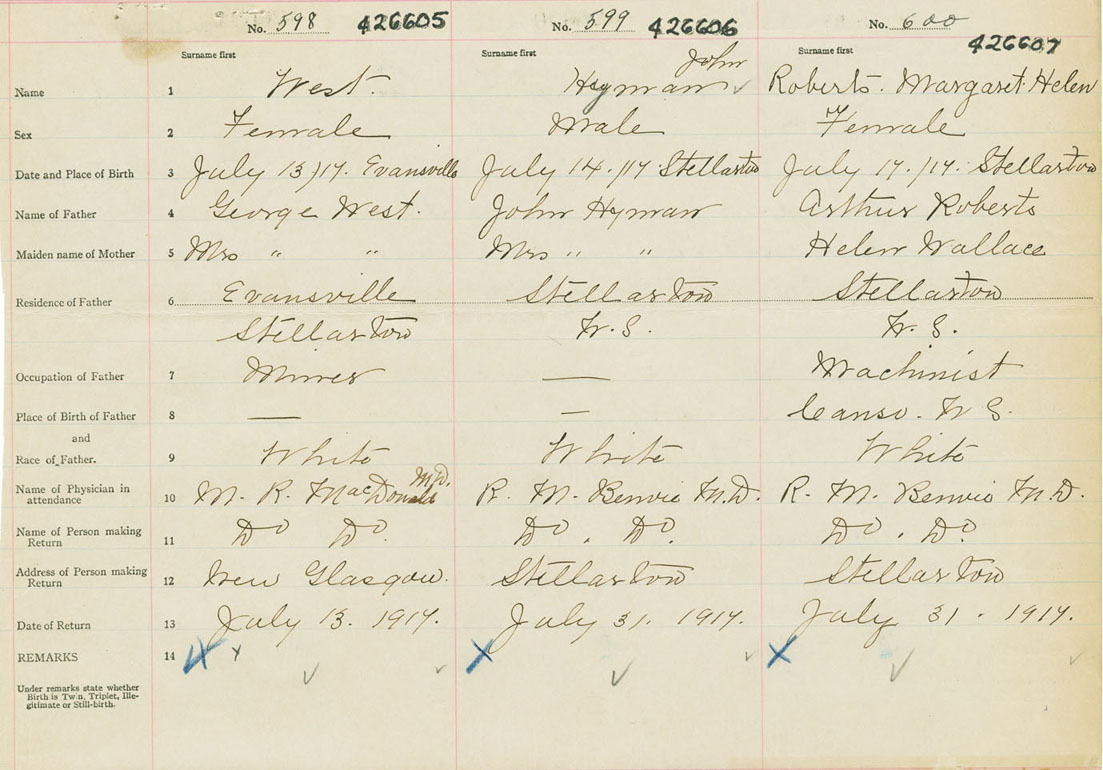 No. 598 426605 No. 599 426606 No. 600 426607
Surname first Surname first Surname first
John
Name 1 West. Hyman Roberts. Margaret Helen
Sex 2 Female Male Female
Date and Place of Birth 3 July 13/17. Evansville July 14./17 Stellarton July 17./17. Stellarton
Name of Father 4 George West. John Hyman Arthur Roberts
Maiden name of Mother 5 Mrs " " Mrs " " Helen Wallace
Residence of Father 6 Evansville Stellarton Stellarton
Stellarton N.S. N.S.
Occupation of Father 7 Miner — Machinist
Place of Birth of Father 8 — — Canso. N S.
and
Race of Father. 9 White White White
Name of Physician in attendance 10 M. R. MacDonald M.D. R. M. Benvie M.D. R. M. Benvie M.D.
Name of Person making Return 11 Do Do. Do. Do. Do. Do.
Address of Person making Return 12 New Glasgow. Stellarton Stellarton
Date of Return 13 July 13. 1917. July 31. 1917. July 31. 1917.
REMARKS 14
Under remarks state whether
Birth is Twin, Triplet, Ille-
gitimate or Still-birth.